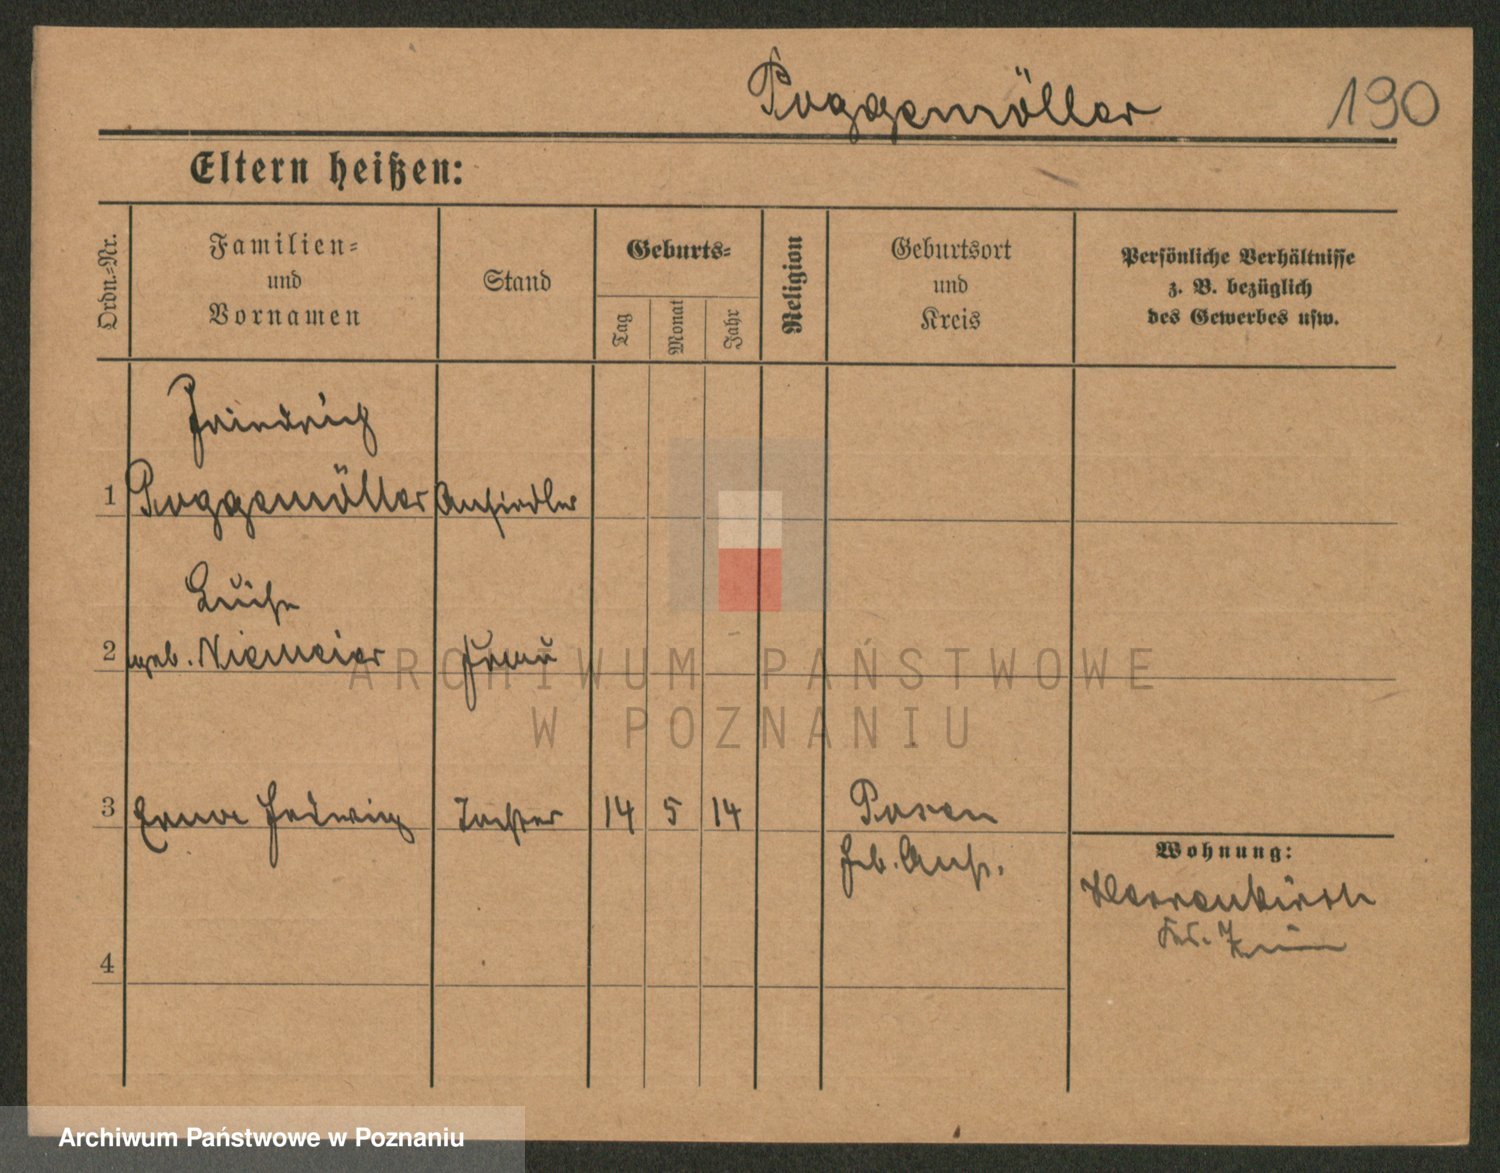 Poggemöller 190
Eltern heißen:
Ordn.=Nr.
Familien=
und
Vornamen
Stand
Geburts=
Tag
Monat
Jahr
Religion
Geburtsort
und
Kreis
Persönliche Verhältnisse
z. B. bezüglich
des Gewerbes usw.
Friedrich
1 Poggemöller Ansiedler
Luise
2 geb. Niemeier Frau
3 Erna Hedwig Tochter 14 5 14 Posen
Heb. Anst.
Wohnung:
Herrenkirch
Krs. Znin
4
ARCHIWUM PAŃSTWOWE
W POZNANIU
Archiwum Państwowe w Poznaniu